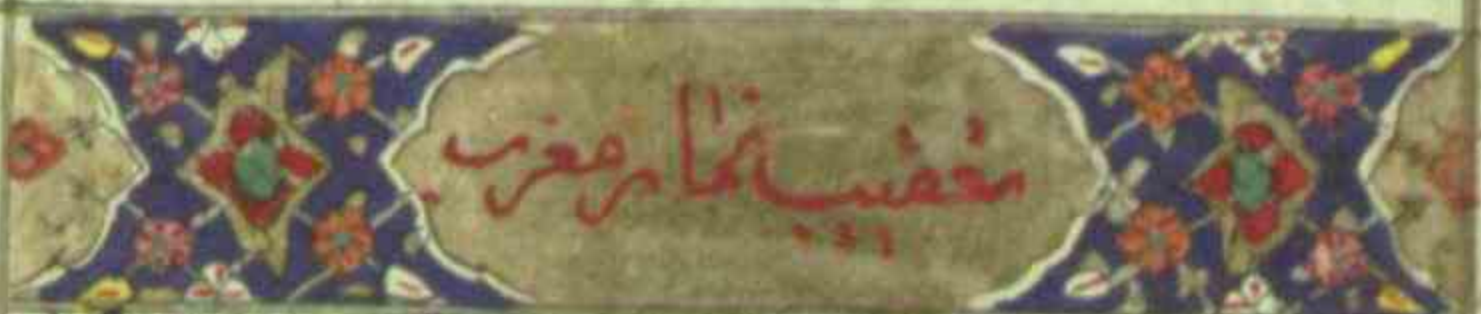 تعقیب نماز مغرب